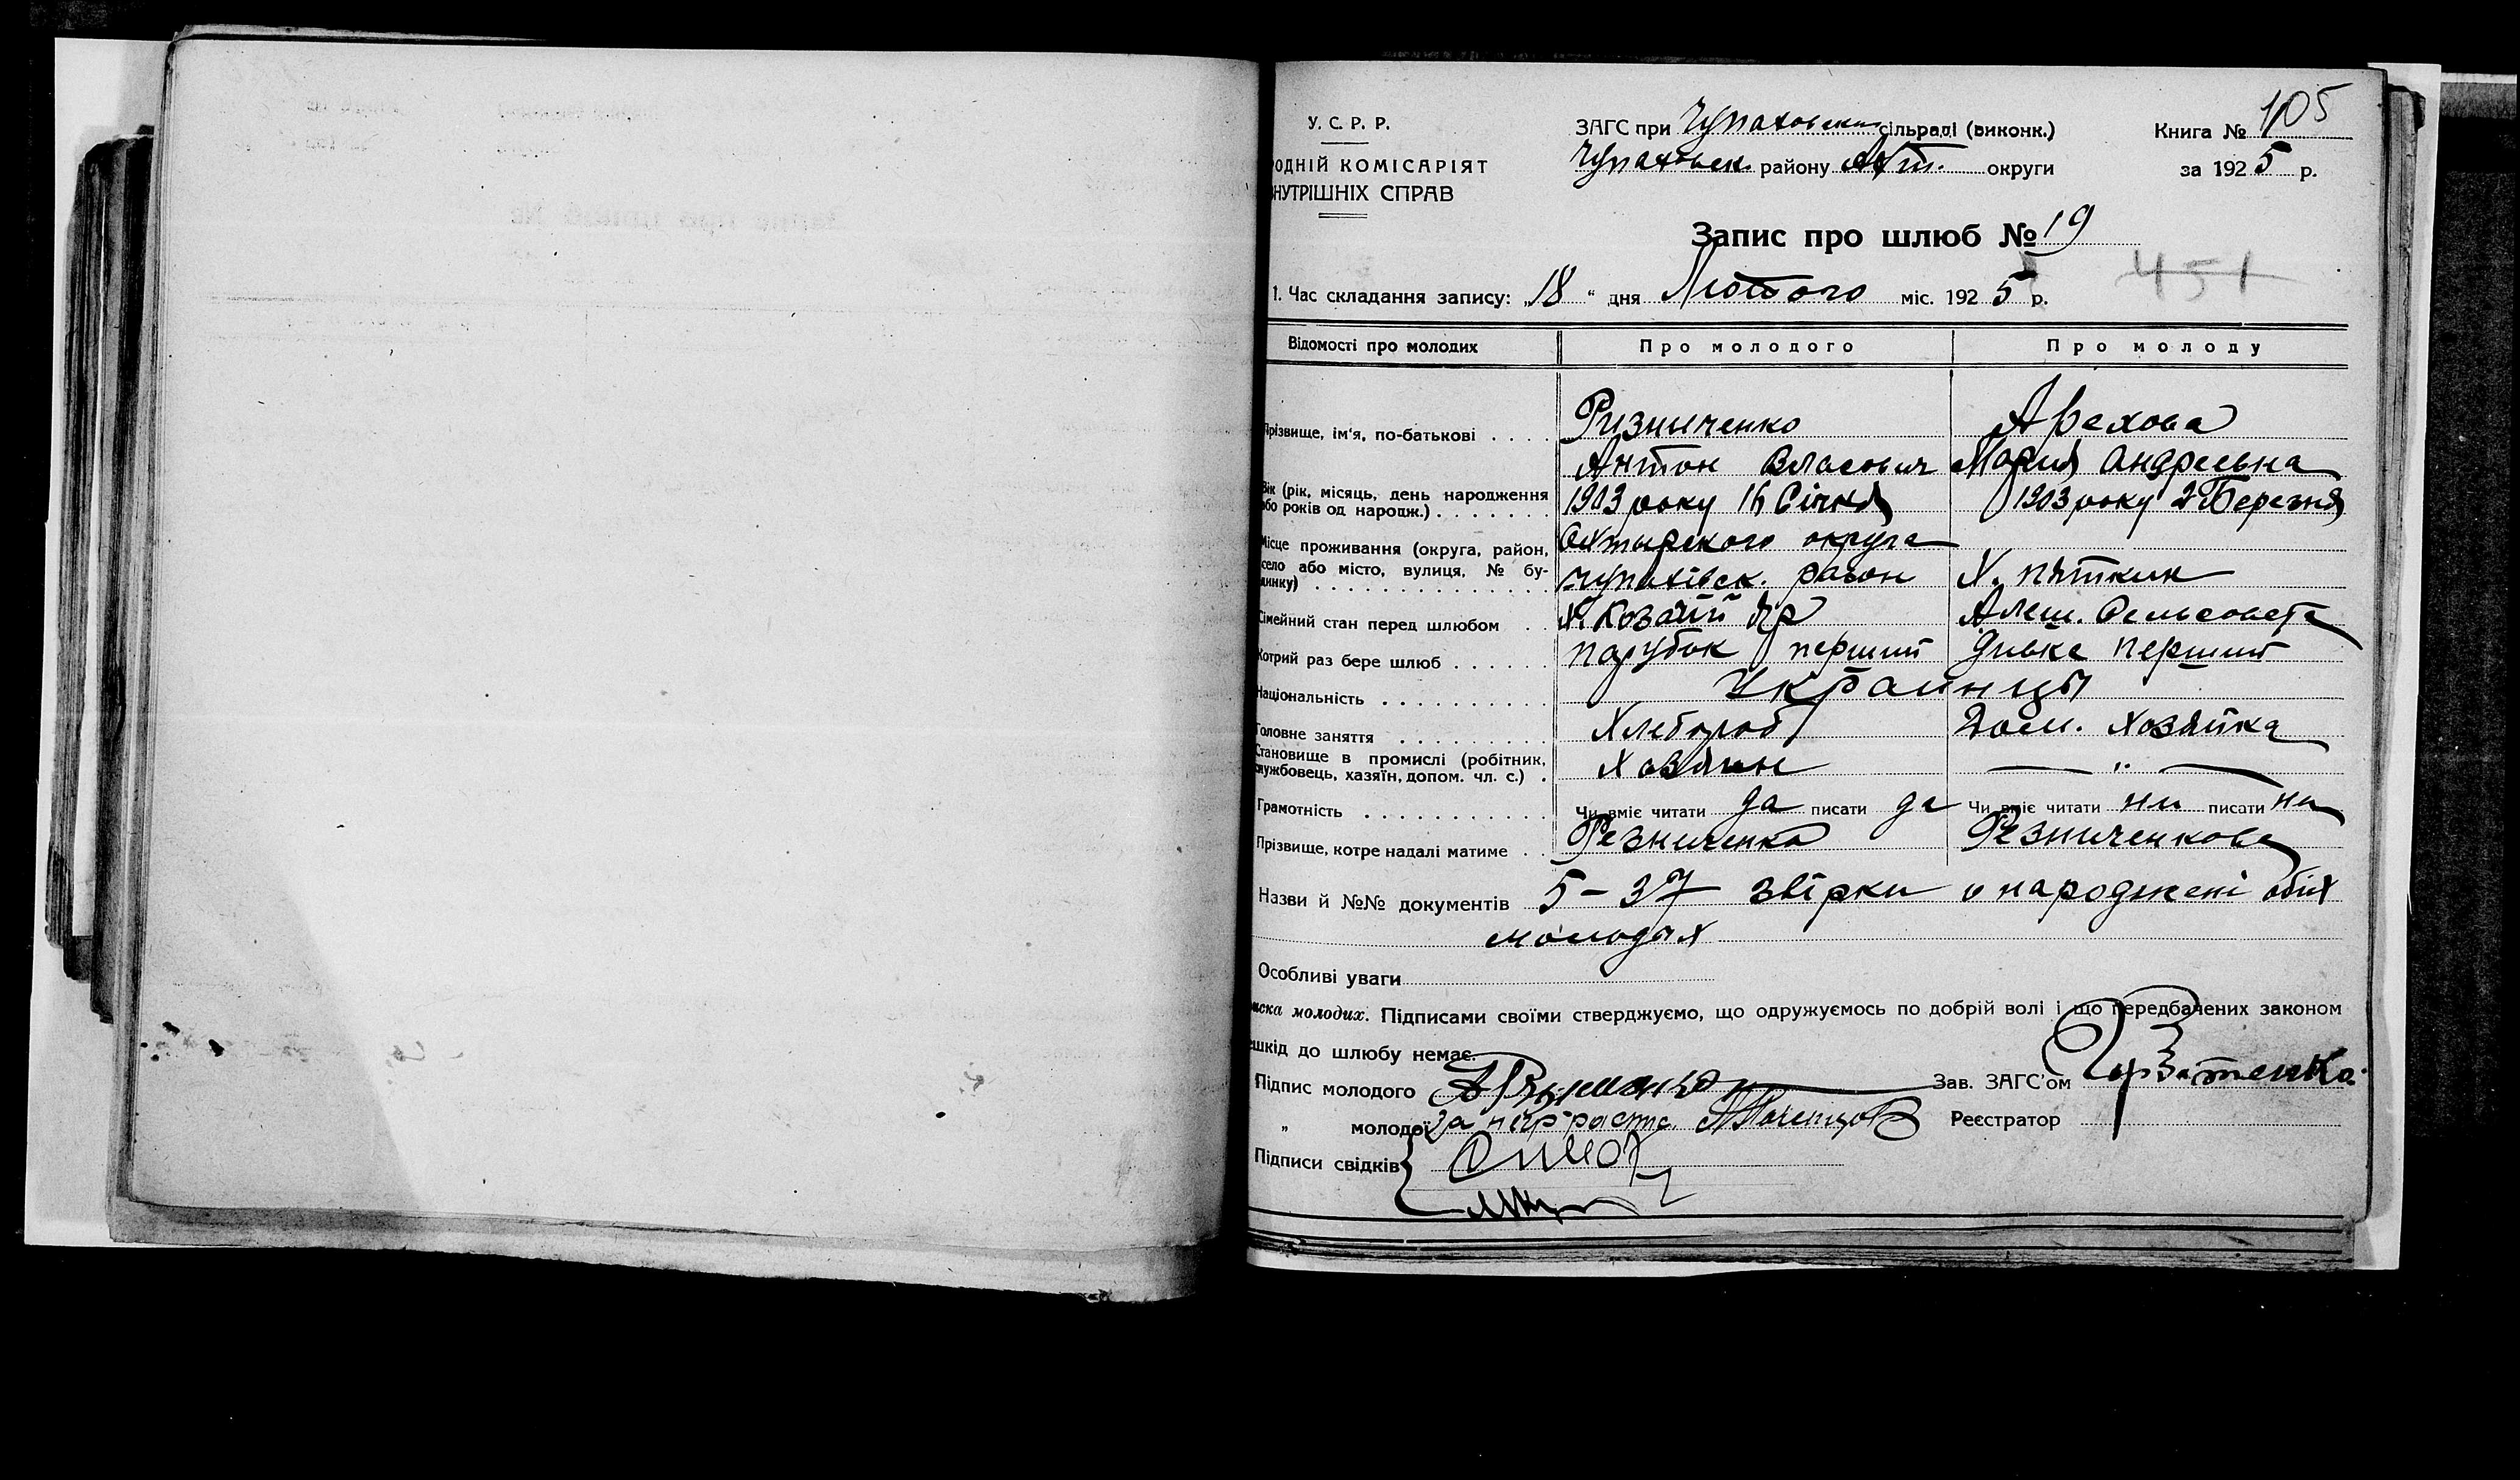 У. С. Р. Р.
ОДНІЙ КОМІСАРІЯТ
НУТРІШНІХ СПРАВ
ЗАГС при сільраді (виконк.)
Чупаховск. району Охт. округи
Книга № 105
за 1925 р.
Запис про шлюб № 19
451
1. Час складання запису: „18“ дня Лютого міс. 1925 р.
Відомості про молодих Про молодого Про молоду
Прізвище, ім'я, по-батькові Ризныченко
Антон Власович Мария Андреевна
Вік (рік, місяць, день народження або років од народж.) 1903 року 16 Січня 1903 року 2 Березня
Місце проживання (округа, район, село або місто, вулиця, № будинку) Охтырского округа
Чупахівск. район Х. Пяткин
Х. Козачий Яр Алеш. Сельсовета
Сімейний стан перед шлюбом
Котрий раз бере шлюб парубок перший дивка перший
Національність Украинцы
Головне заняття Хлебороб Дом. хозяйка
Становище в промислі (робітник, службовець, хазяїн, допом. чл. с.) Хозяин — „ —
Грамотність Чи вміє читати да писати да Чи вміє читати ни писати ни
Прізвище, котре надалі матиме Резниченко Резниченкова
Назви й №№ документів 5 – 37 звірки о народжені обіх
молодых
Особливі уваги
иска молодих. Підписами своїми стверджуємо, що одружуємось по добрій волі і що передбачених законом
ешкід до шлюбу немає.
Підпис молодого Зав. ЗАГС'ом
„ молодої за Реєстратор
Підписи свідків